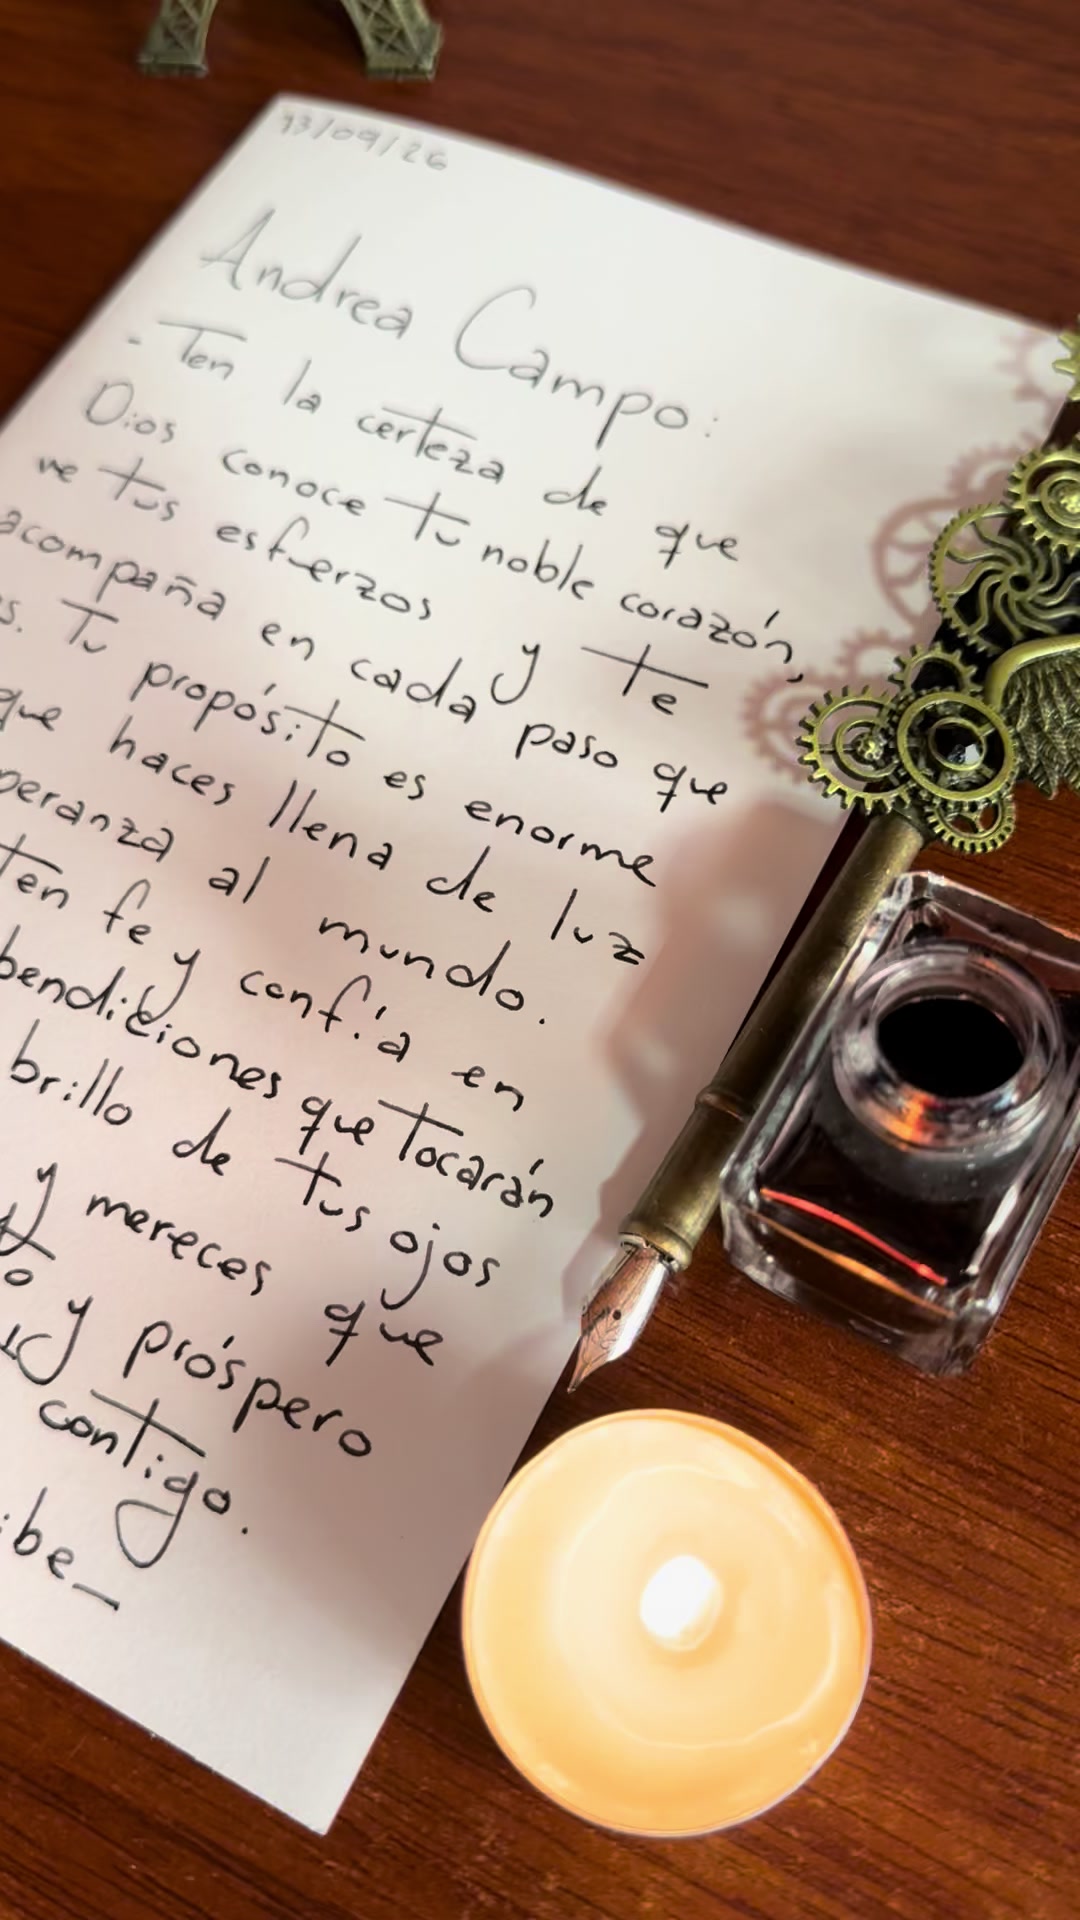 13/09/26
Andrea Campo:
- Ten la certeza de que
Dios conoce tu noble corazón,
ve tus esfuerzos y te
acompaña en cada paso que
s. Tu propósito es enorme
que haces llena de luz
peranza al mundo.
ten fe y confía en
bendiciones que tocarán
brillo de tus ojos
y mereces que
to y próspero
contigo.
ibe_